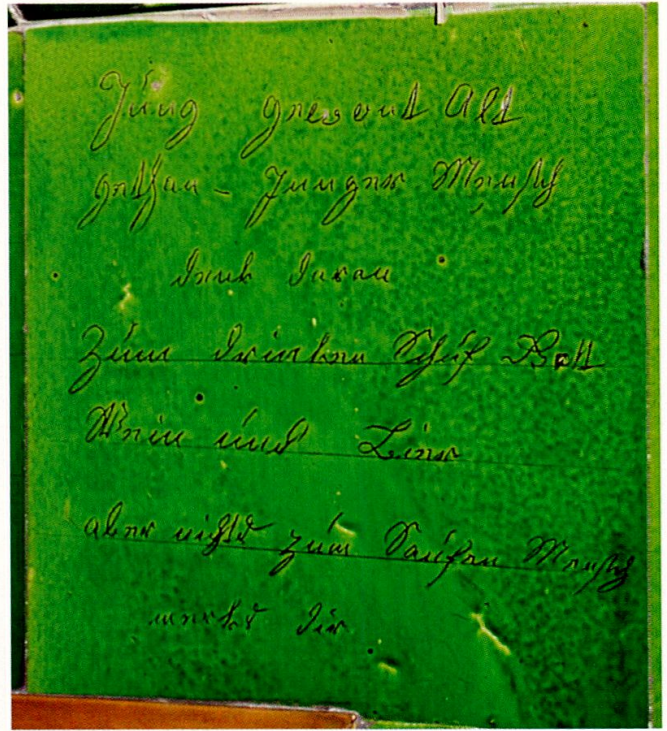 Jung gewont Alt
gethan – Junger Mensch
denk daran
Zum drinken Schuf Gott
Wein und Bier
aber nichts zum Saufen Mensch
merks dir